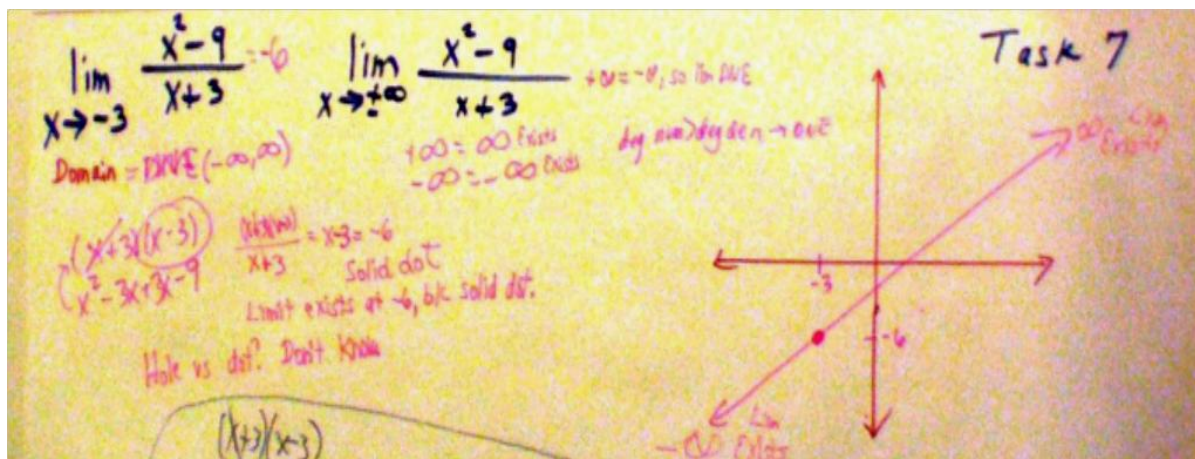 Task 7
lim x→-3 x²-9 / x+3 = -6
lim x→±∞ x²-9 / x+3
+∞=-∞, so lim DNE
Domain = DNE (-∞,∞)
+∞ = ∞ Exists
-∞ = -∞ Exists
deg num>deg den → DNE
(x+3)(x-3)
x²-3x+3x-9
x+3 = x-3 = -6
Solid dot
Limit exists at -6, b/c solid dot.
Hole vs dot? Don't know
(x+3)(x-3)
∞ Lim
Exists
-3
-6
-∞ Lim
Exists